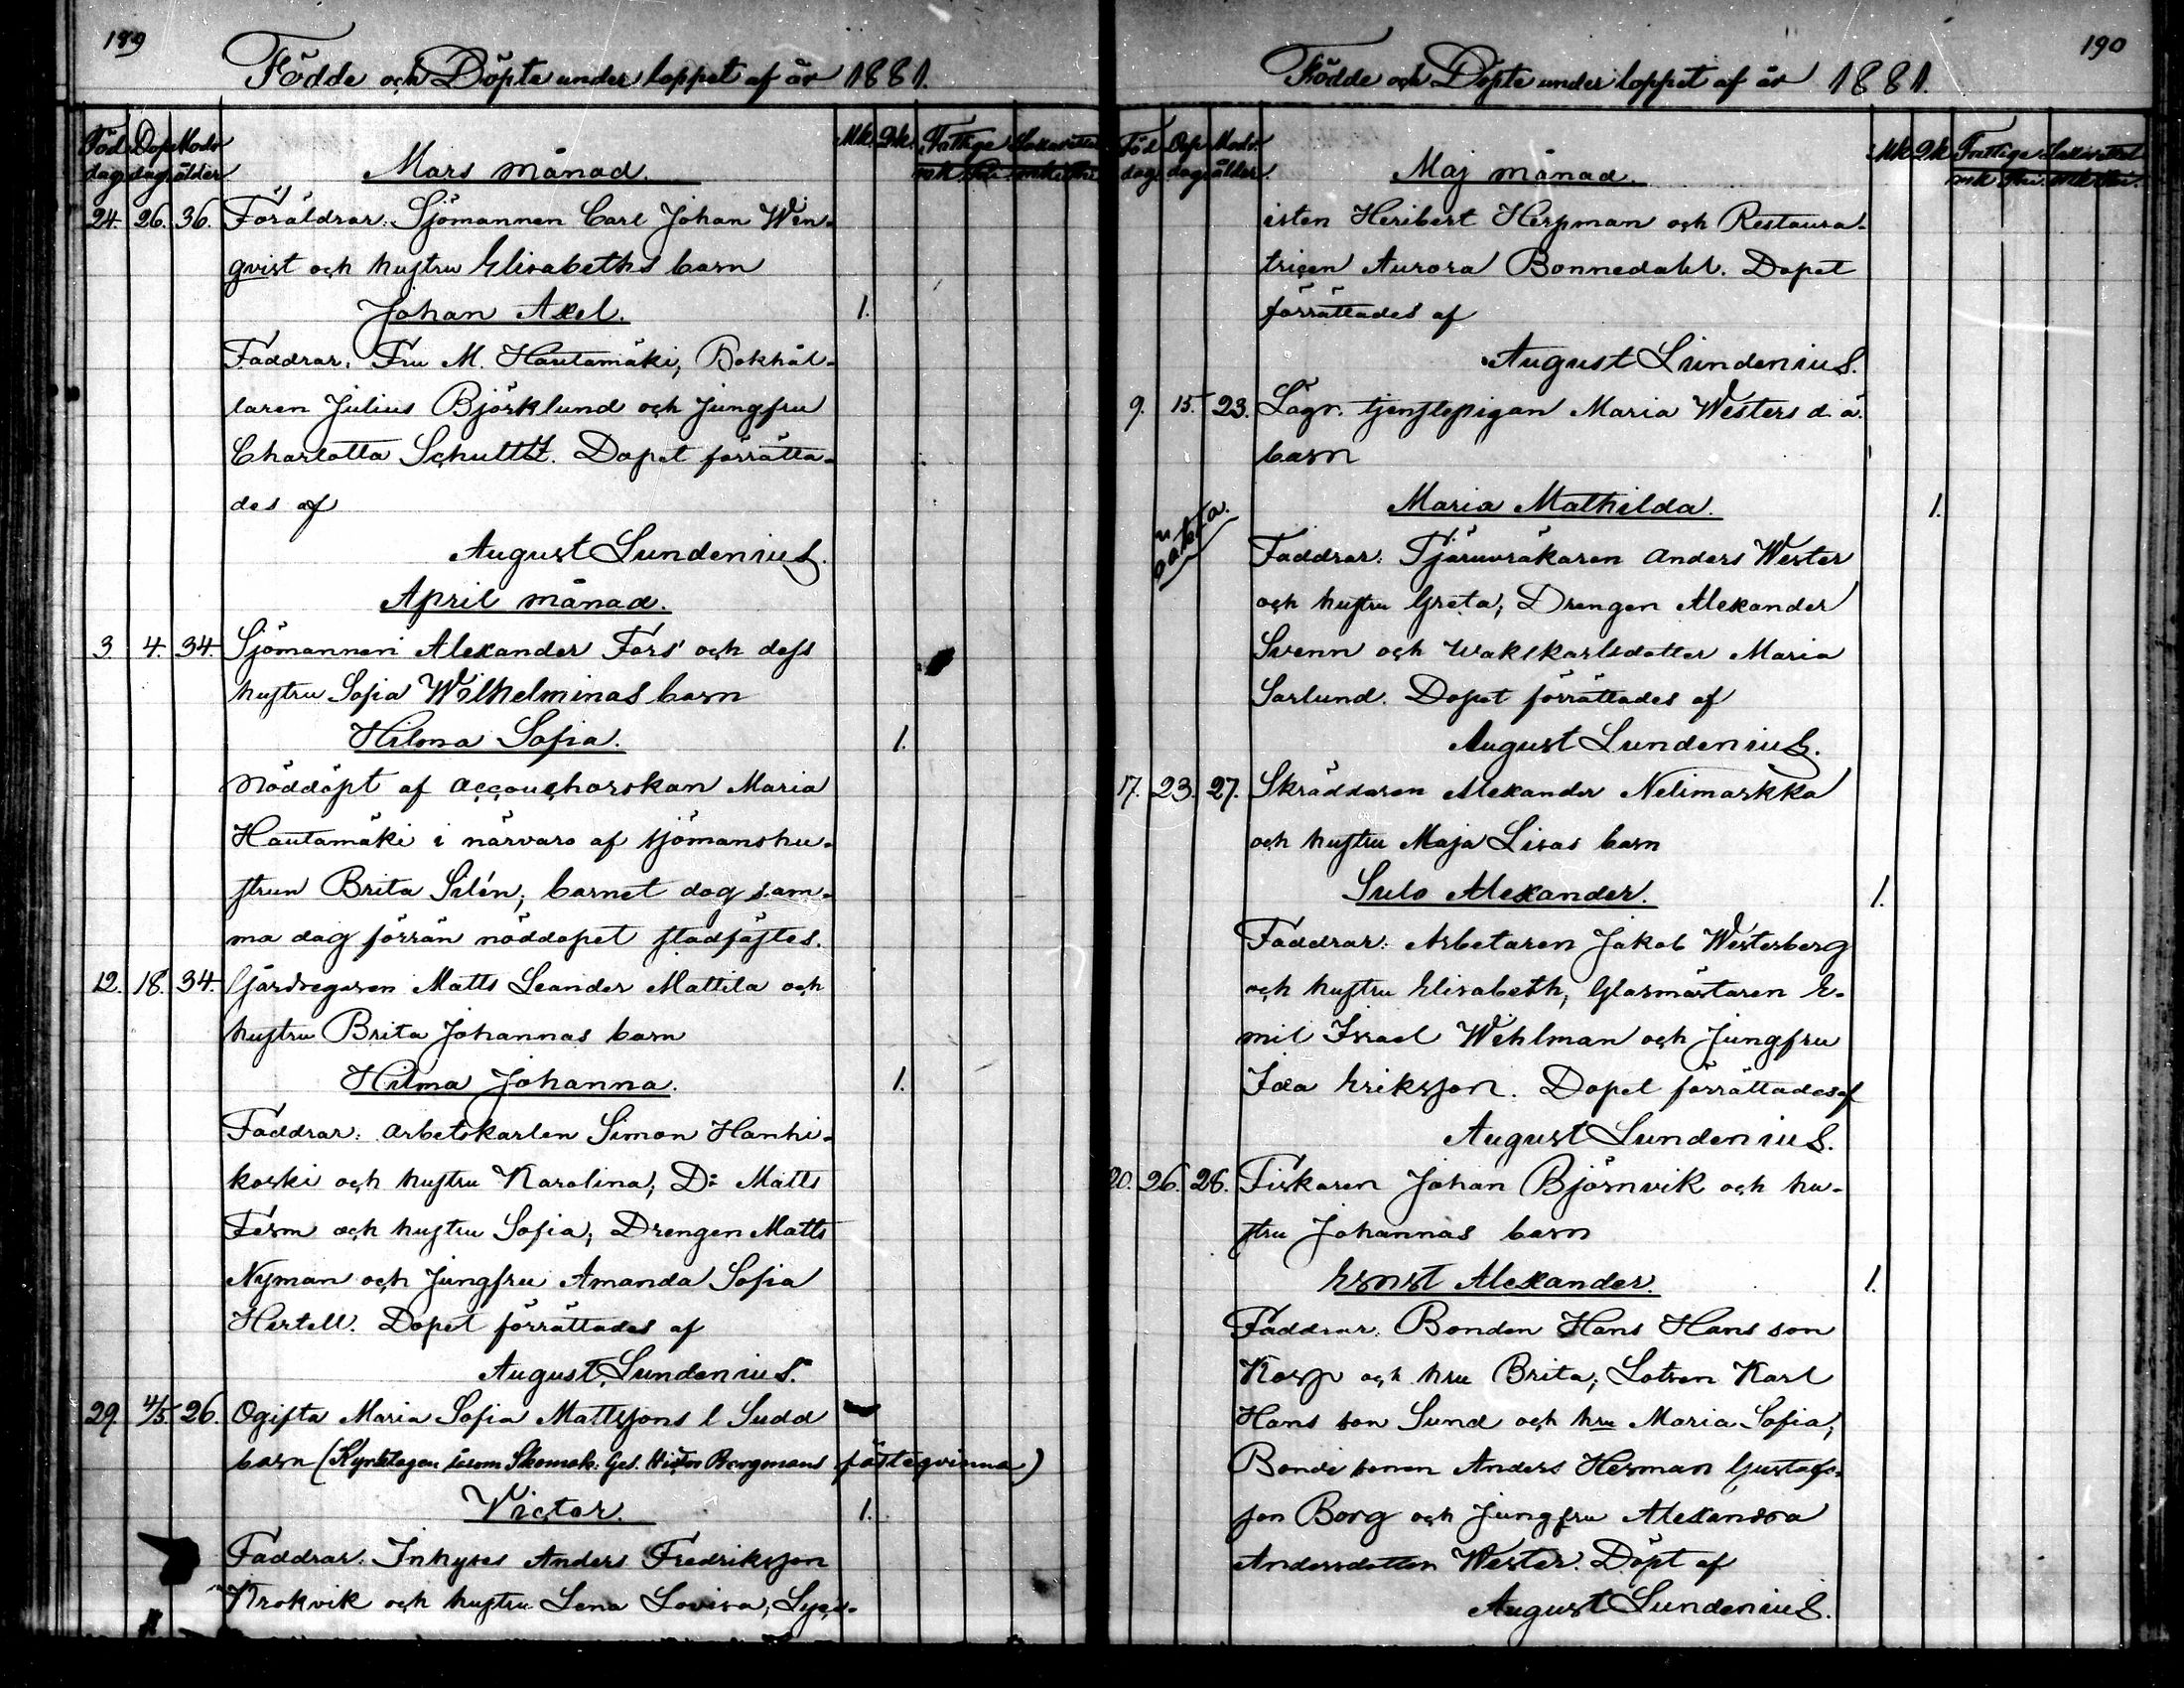 189
Födde och Döpte under loppet af år 1881.
Föd. dag Dop dag Mods ålder Mk. Qk. Fattige
Mars månad.
24. 26. 36. Föräldrar: Sjömannen Carl Johan Wen-
qvist och hustru Elisabeths barn
Johan Axel. 1.
Faddrar: Fru M. Hautamäki, Bokhål-
laren Julius Björklund och Jungfru
Charlotta Schultz. Dopet förrätta-
des af
August Lundenius.
April månad.
3. 4. 34. Sjömannen Alexander Fors och dess
hustru Sofia Wilhelminas barn
Hilma Sofia. 1.
Nöddöpt af accoucherskan Maria
Hautamäki i närvaro af sjömanshu-
strun Brita Silén; barnet dog sam-
ma dag förrän nöddopet stadfästes.
12. 18. 34. Gårdregaren Matts Leander Mattila och
hustru Brita Johannas barn
Hilma Johanna. 1.
Faddrar: Arbetskarlen Simon Hanhi-
koski och hustru Karolina; D:o Matts
Ferm och hustru Sofia; Drengen Matts
Nyman och Jungfru Amanda Sofia
Hertell. Dopet förrättades af
August Lundenius.
29. 4/5. 26. Ogifta Maria Sofia Mattssons l Sudd
barn (Kyrktagen såsom Skomak: Ges. Victor Bergmans fästeqvinna)
Victor. 1.
Faddrar: Inhyses Anders Fredriksson
Krokvik och hustru Lena Lovisa, Lyce-
190
Födde och Döpte under loppet af år 1881.
Föd dag. Dop dag Mods. ålder. Mk Qk Fattige
Maj månad.
isten Heribert Herpman och Restaura-
tricen Aurora Bonnedahl. Dopet
förrättades af
August Lundenius.
9. 15. 23. Lägr. tjenstepigan Maria Westers d. ä.
barn
oäkta.
Maria Mathilda. 1.
Faddrar: Tjäruvräkaren Anders Wester
och hustru Greta; Drengen Alexander
Svenn och waktkarlsdotter Maria
Sarlund. Dopet förrättades af
August Lundenius.
17. 23. 27. Skräddaren Alexander Nelimarkka
och hustru Maja Lisas barn
Sulo Alexander. 1.
Faddrar: Arbetaren Jakob Westerberg
och hustru Elisabeth, Glasmästaren E-
mil Israel Wihlman och Jungfru
Ida Eriksson. Dopet förrättades af
August Lundenius.
20. 26. 28. Fiskaren Johan Björnvik och hu-
stru Johannas barn
Ernst Alexander. 1.
Faddrar: Bonden Hans Hans son
Korp och hru Brita; Lotsen Karl
Hans son Sund och hru Maria Sofia;
Bonde sonen Anders Herman Gustafs-
son Borg och Jungfru Alexandra
Andersdotter Wester. Döpt af
August Lundenius.